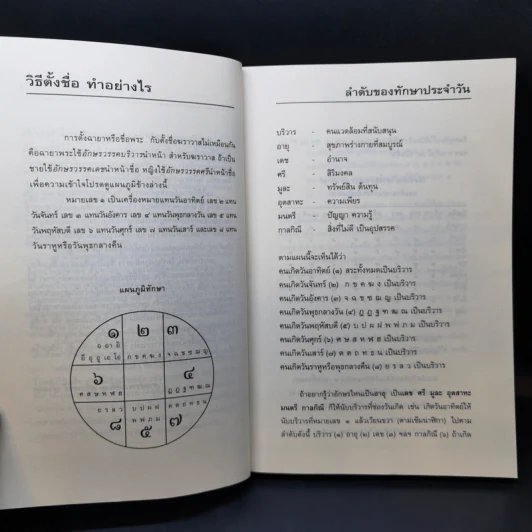 วิธีตั้งชื่อ ทำอย่างไร
การตั้งฉายาหรือชื่อพระ กับตั้งชื่อฆราวาสไม่เหมือนกัน
คือฉายาพระใช้อักษรวรรคบริวารนำหน้า สำหรับฆราวาส ถ้าเป็น
ชายใช้อักษรวรรคเดชนำหน้าชื่อ หญิงใช้อักษรวรรคศรีนำหน้าชื่อ
เพื่อความเข้าใจโปรดดูแผนภูมิข้างล่างนี้
หมายเลข ๑ เป็นเครื่องหมายแทนวันอาทิตย์ เลข ๒ แทน
วันจันทร์ เลข ๓ แทนวันอังคาร เลข ๔ แทนวันพุธกลางวัน เลข ๕ แทน
วันพฤหัสบดี เลข ๖ แทนวันศุกร์ เลข ๗ แทนวันเสาร์ และเลข ๘ แทน
วันราหูหรือวันพุธกลางคืน
แผนภูมิทักษา
๑ ๒ ๓
อ อา อิ
อี อุ อู เอ โอ ก ข ค ฆ ง จ ฉ ช ซ ฌ ญ
๖ ๔
ศ ษ ส ห ฬ ฮ ฎ ฏ ฐ ฑ ฒ ณ
ย ร ล ว บ ป ผ ฝ พ ฟ ภ ม ด ต ถ ท ธ น
๘ ๕ ๗
ลำดับของทักษาประจำวัน
บริวาร - คนแวดล้อมที่สนับสนุน
อายุ - สุขภาพร่างกายที่สมบูรณ์
เดช - อำนาจ
ศรี - สิริมงคล
มูละ - ทรัพย์สิน ต้นทุน
อุตสาหะ - ความเพียร
มนตรี - ปัญญา ความรู้
กาลกิณี - สิ่งที่ไม่ดี เป็นอุปสรรค
ตามแผนนี้จะเห็นได้ว่า
คนเกิดวันอาทิตย์ (๑) สระทั้งหมดเป็นบริวาร
คนเกิดวันจันทร์ (๒) ก ข ค ฆ ง เป็นบริวาร
คนเกิดวันอังคาร (๓) จ ฉ ช ซ ฌ ญ เป็นบริวาร
คนเกิดวันพุธกลางวัน (๔) ฎ ฏ ฐ ฑ ฒ ณ เป็นบริวาร
คนเกิดวันพฤหัสบดี (๕) บ ป ผ ฝ พ ฟ ภ ม เป็นบริวาร
คนเกิดวันศุกร์ (๖) ศ ษ ส ห ฬ ฮ เป็นบริวาร
คนเกิดวันเสาร์ (๗) ด ต ถ ท ธ น เป็นบริวาร
คนเกิดวันราหูหรือวันพุธกลางคืน (๘) ย ร ล ว เป็นบริวาร
ถ้าอยากรู้ว่าอักษรไหนเป็นอายุ เป็นเดช ศรี มูละ อุตสาหะ
มนตรี กาลกิณี ก็ให้นับบริวารที่ช่องวันเกิด เช่น เกิดวันอาทิตย์ให้
นับบริวารที่หมายเลข ๑ แล้วเวียนขวา (ตามเข็มนาฬิกา) ไปตาม
ลำดับดังนี้ บริวาร (๑) อายุ (๒) เดช (๓) ฯลฯ กาลกิณี (๖) ถ้าเกิด